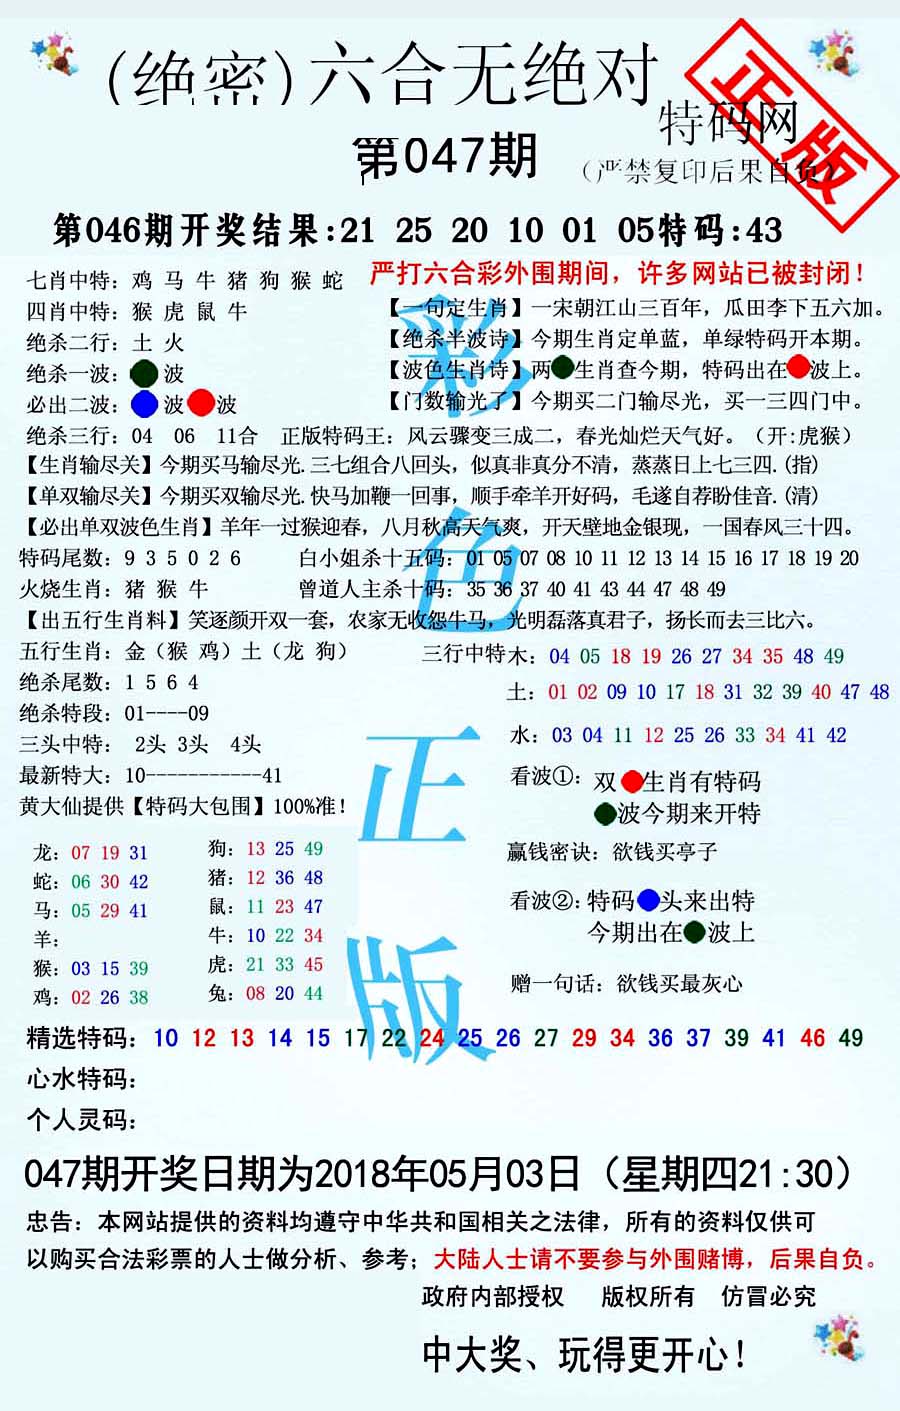 (绝密)六合无绝对
特码网
正版
第047期
(严禁复印后果自负)
第046期开奖结果:21 25 20 10 01 05特码:43
七肖中特: 鸡 马 牛 猪 狗 猴 蛇
严打六合彩外围期间，许多网站已被封闭！
四肖中特: 猴 虎 鼠 牛
【一句定生肖】一宋朝江山三百年，瓜田李下五六加。
绝杀二行: 土 火
【绝杀半波诗】今期生肖定单蓝，单绿特码开本期。
绝杀一波: 波
【波色生肖诗】两 生肖查今期，特码出在 波上。
必出二波: 波 波
【门数输光了】今期买二门输尽光，买一三四门中。
绝杀三行: 04 06 11合 正版特码王: 风云骤变三成二，春光灿烂天气好。（开:虎猴）
【生肖输尽关】今期买马输尽光.三七组合八回头，似真非真分不清，蒸蒸日上七三四.(指)
【单双输尽关】今期买双输尽光.快马加鞭一回事，顺手牵羊开好码，毛遂自荐盼佳音.(清)
【必出单双波色生肖】羊年一过猴迎春，八月秋高天气爽，开天壁地金银现，一国春风三十四。
特码尾数: 9 3 5 0 2 6 白小姐杀十五码: 01 05 07 08 10 11 12 13 14 15 16 17 18 19 20
火烧生肖: 猪 猴 牛 曾道人主杀十码: 35 36 37 40 41 43 44 47 48 49
【出五行生肖料】笑逐颜开双一套，农家无收怨牛马，光明磊落真君子，扬长而去三比六。
五行生肖: 金（猴 鸡）土（龙 狗）
三行中特木: 04 05 18 19 26 27 34 35 48 49
绝杀尾数: 1 5 6 4
土: 01 02 09 10 17 18 31 32 39 40 47 48
绝杀特段: 01----09
水: 03 04 11 12 25 26 33 34 41 42
三头中特: 2头 3头 4头
最新特大: 10-----------41
看波①: 双 生肖有特码
波今期来开特
黄大仙提供【特码大包围】100%准!
龙: 07 19 31
狗: 13 25 49
赢钱密诀: 欲钱买亭子
蛇: 06 30 42
猪: 12 36 48
马: 05 29 41
鼠: 11 23 47
看波②: 特码 头来出特
今期出在 波上
羊:
牛: 10 22 34
猴: 03 15 39
虎: 21 33 45
鸡: 02 26 38
兔: 08 20 44
赠一句话: 欲钱买最灰心
彩色正版
精选特码: 10 12 13 14 15 17 22 24 25 26 27 29 34 36 37 39 41 46 49
心水特码:
个人灵码:
047期开奖日期为2018年05月03日（星期四21:30）
忠告: 本网站提供的资料均遵守中华共和国相关之法律，所有的资料仅供可
以购买合法彩票的人士做分析、参考；大陆人士请不要参与外围赌博，后果自负。
政府内部授权 版权所有 仿冒必究
中大奖、玩得更开心！